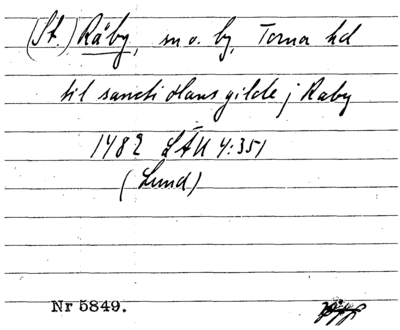 (St.) Råby, sn o. by, Torna hd
til sancti olaus gilde j Raby
1482 LÄU 4:351
(Lund)
Nr 5849.